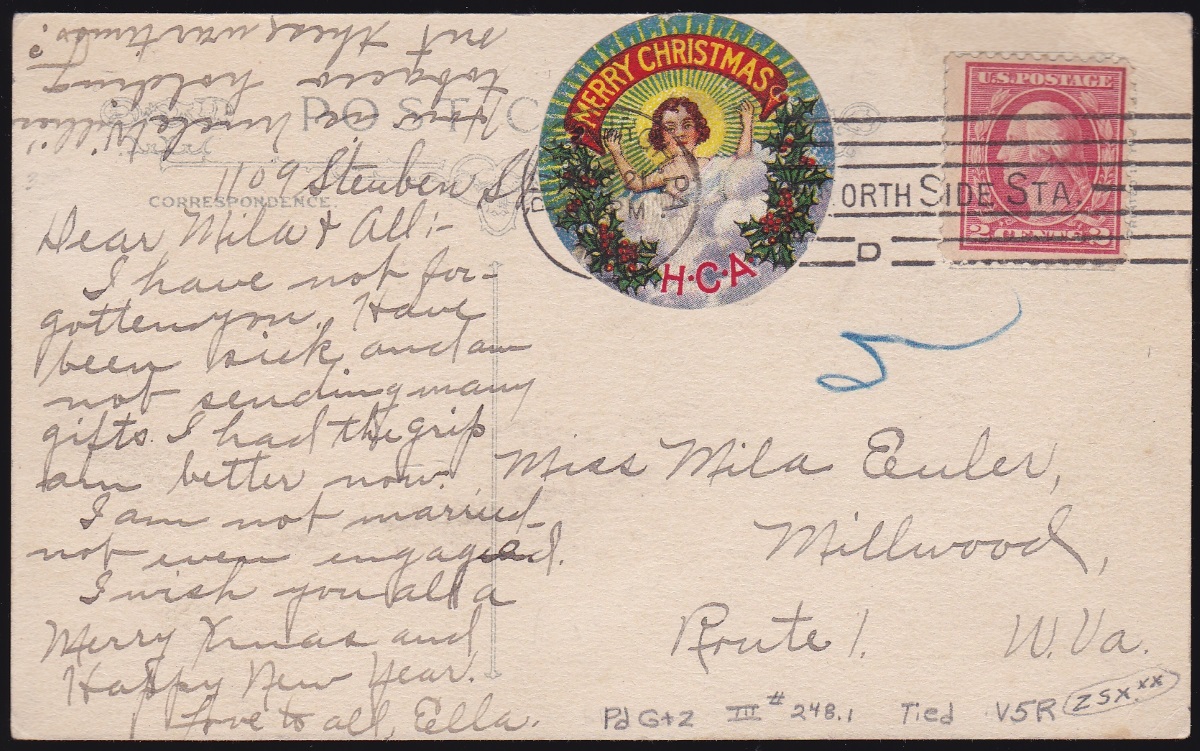 POST C
CORRESPONDENCE.
1109 Steuben St.
Dear Mila & All:-
I have not for-
gotten you. Have
been sick and am
not sending many
gifts. I had the grip
am better now.
I am not married-
not even engaged.
I wish you all a
Merry Xmas and
Happy New Year.
Love to all, Ella.
How is Uncle Willie's
tobacco holding
out these war times?
MERRY CHRISTMAS
H·C·A
PM
ORTH SIDE STA.
D
U.S. POSTAGE
2 CENTS 2
Miss Mila Euler,
Millwood,
Route 1. W. Va.
Pd G+Z III #248.1 Tied V5R ZSX.XX